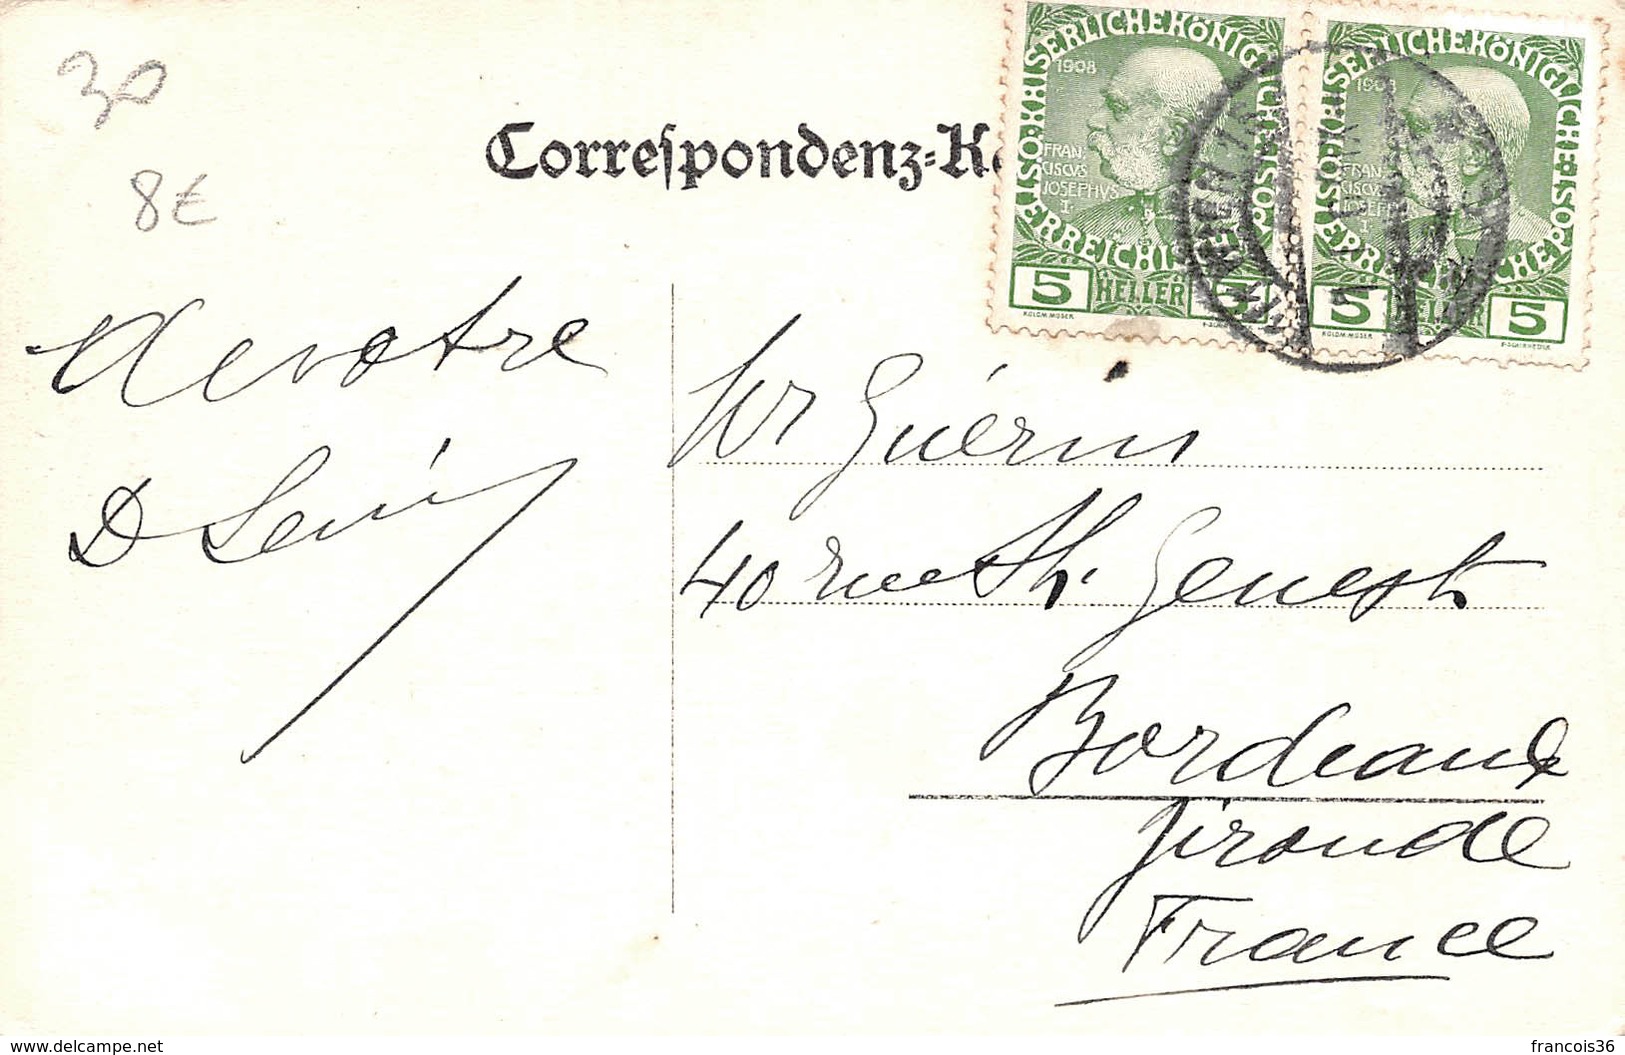 30
8€
Correspondenz-K
KAISERLICHE KÖNIGLICHE ÖSTERREICHISCHE POST
1908
FRAN
CISCVS
IOSEPHVS
I
5 HELLER 5
KOLOM.MOSER
KAISERLICHE KÖNIGLICHE ÖSTERREICHISCHE POST
1908
FRAN
CISCVS
IOSEPHVS
I
5 HELLER 5
KOLOM.MOSER
A votre
Mr Guérin
40 rue St. Genest
Bordeaux
Gironde
France
Delcampe.net
francois36